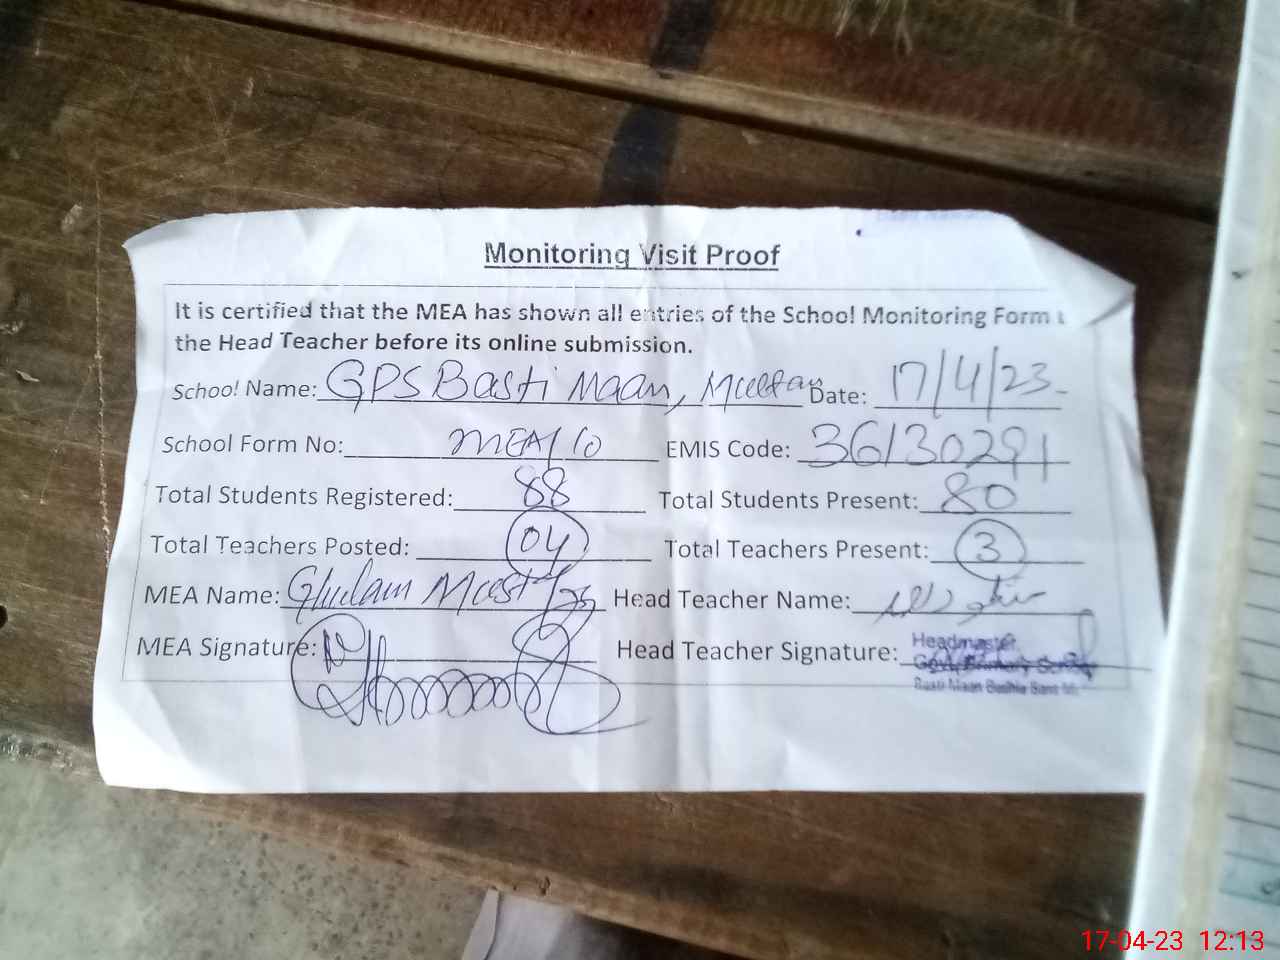 Monitoring Visit Proof
It is certified that the MEA has shown all entries of the School Monitoring Form
the Head Teacher before its online submission.
School Name: GPS Basti Maan, Multan Date: 17/4/23
School Form No: MEA/10 EMIS Code: 36130291
Total Students Registered: 88 Total Students Present: 80
Total Teachers Posted: 04 Total Teachers Present: 3
MEA Name: Ghulam Head Teacher Name:
MEA Signature: Head Teacher Signature:
Headmaster
Govt. Primary School
Basti Maan
17-04-23 12:13